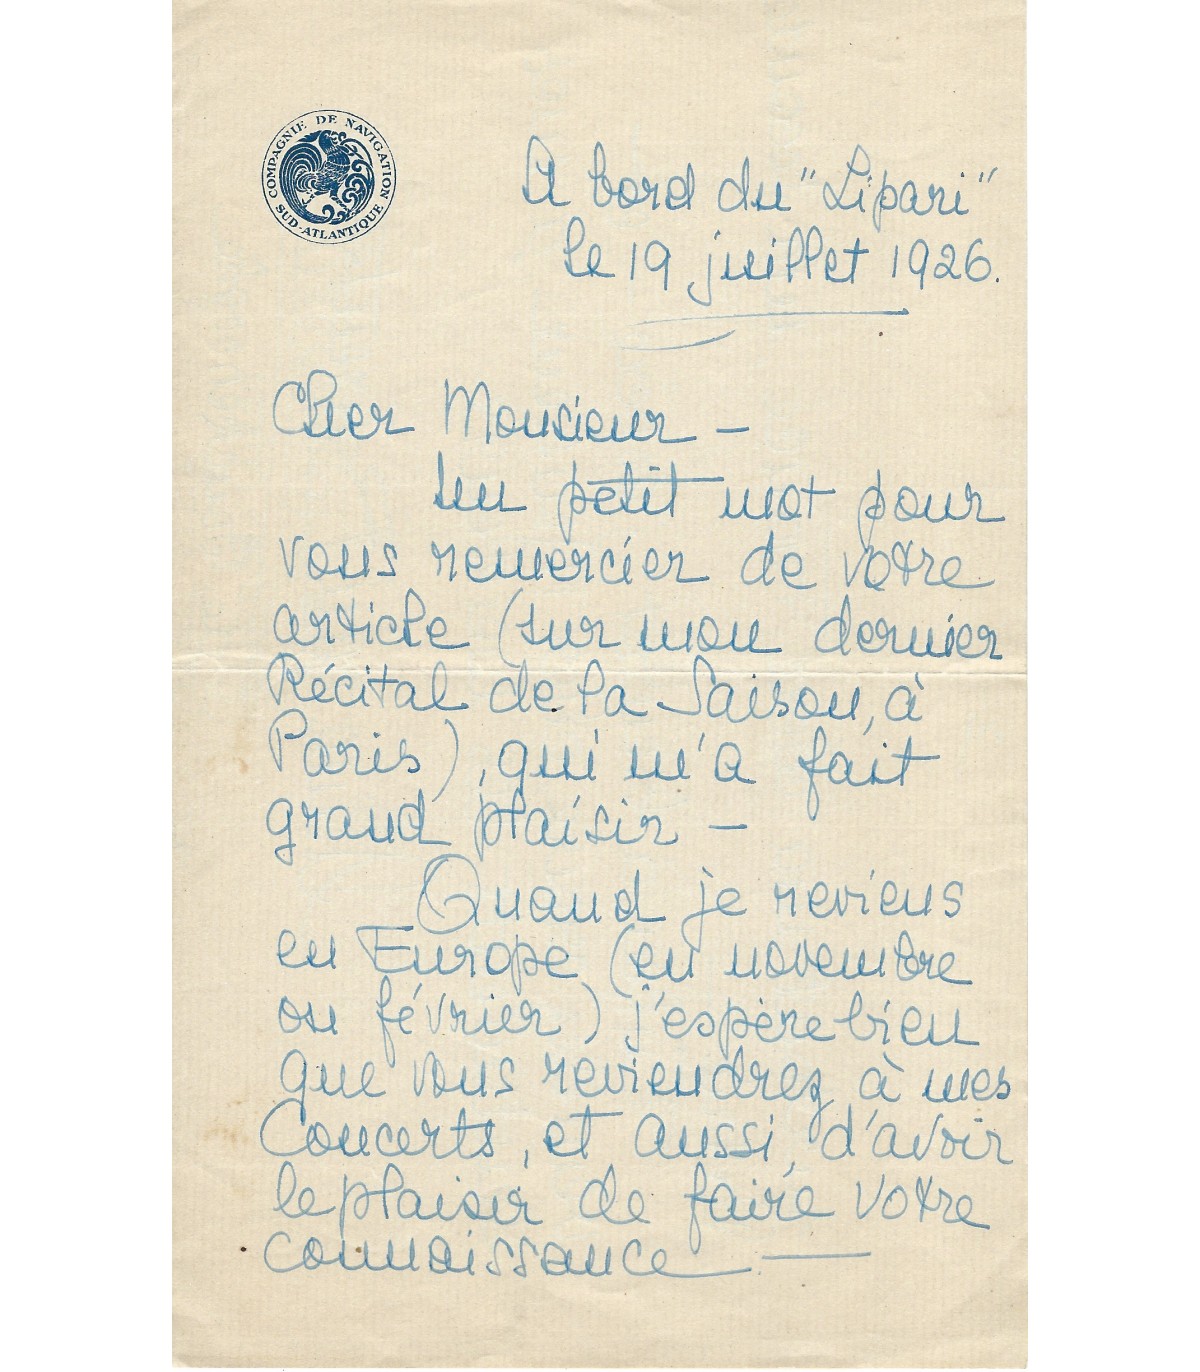 COMPAGNIE DE NAVIGATION
SUD-ATLANTIQUE
A bord du "Lipari"
le 19 juillet 1926.
Cher Monsieur –
un petit mot pour
vous remercier de votre
article (sur mon dernier
Récital de la Saison, à
Paris), qui m'a fait
grand plaisir –
Quand je reviens
en Europe (en novembre
ou février) j'espère bien
que vous reviendrez à mes
Concerts, et aussi, d'avoir
le plaisir de faire votre
connaissance —